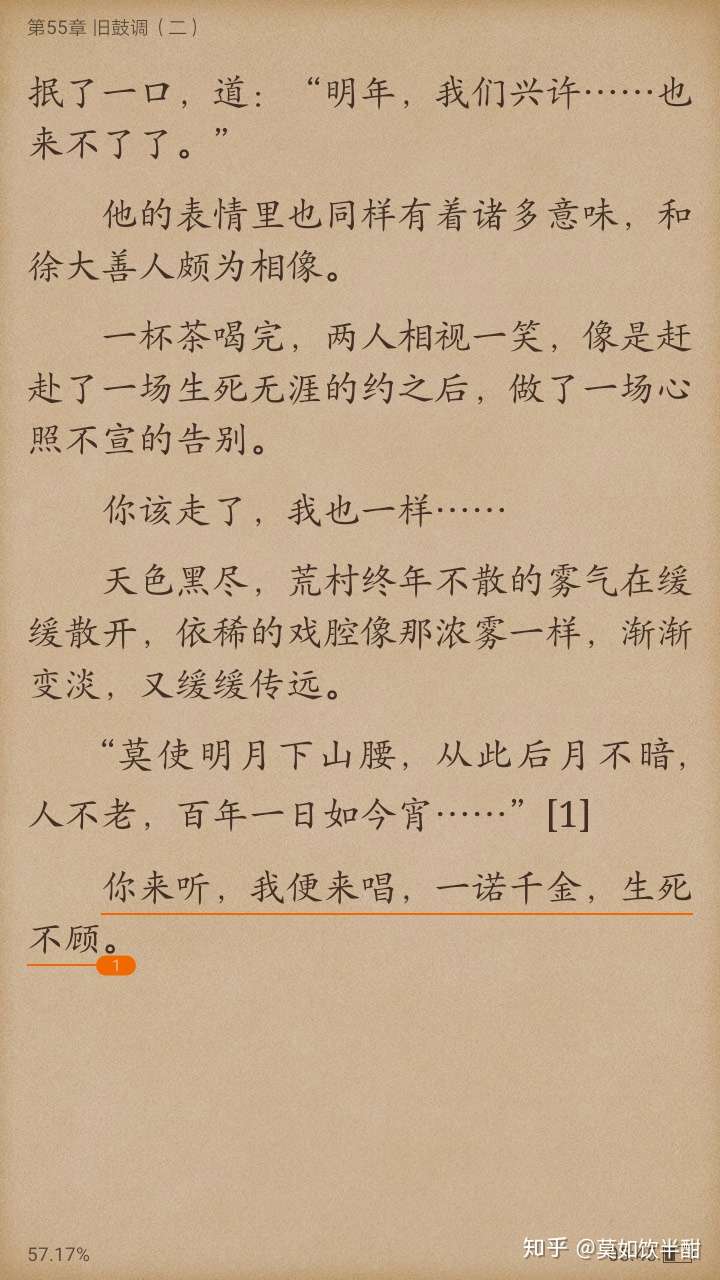 第55章 旧鼓调（二）
抿了一口，道：“明年，我们兴许……也
来不了了。”
他的表情里也同样有着诸多意味，和
徐大善人颇为相像。
一杯茶喝完，两人相视一笑，像是赶
赴了一场生死无涯的约之后，做了一场心
照不宣的告别。
你该走了，我也一样……
天色黑尽，荒村终年不散的雾气在缓
缓散开，依稀的戏腔像那浓雾一样，渐渐
变淡，又缓缓传远。
“莫使明月下山腰，从此后月不暗，
人不老，百年一日如今宵……”[1]
你来听，我便来唱，一诺千金，生死
不顾。
1
57.17%
知乎 @莫如饮半酣